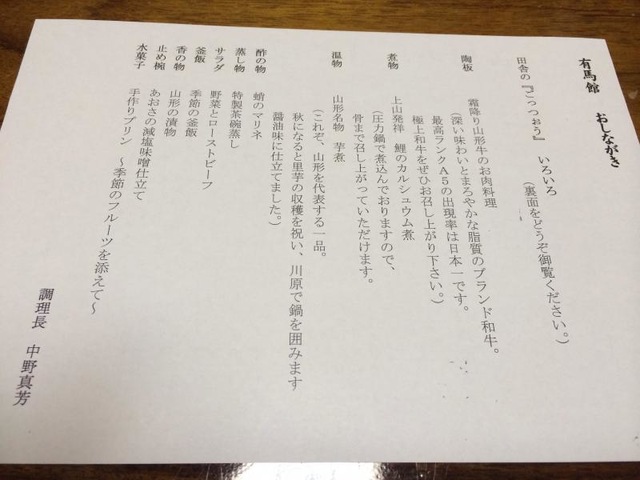 有馬館　おしながき
田舎の『ごっつぉう』　いろいろ
（裏面をどうぞ御覧ください。）
陶板　霜降り山形牛のお肉料理
（深い味わいとまろやかな脂質のブランド和牛。
最高ランクA5の出現率は日本一です。
極上和牛をぜひお召し上がり下さい。）
煮物　上山発祥　鯉のカルシュウム煮
（圧力鍋で煮込んでおりますので、
骨まで召し上がっていただけます。
温物　山形名物　芋煮
（これぞ、山形を代表する一品。
秋になると里芋の収穫を祝い、川原で鍋を囲みます
醤油味に仕立てました。）
酢の物　蛸のマリネ
蒸し物　特製茶碗蒸し
サラダ　野菜とローストビーフ
釜飯　季節の釜飯
香の物　山形の漬物
止め椀　あおさの減塩味噌仕立て
水菓子　手作りプリン　～季節のフルーツを添えて～
調理長　中野真芳